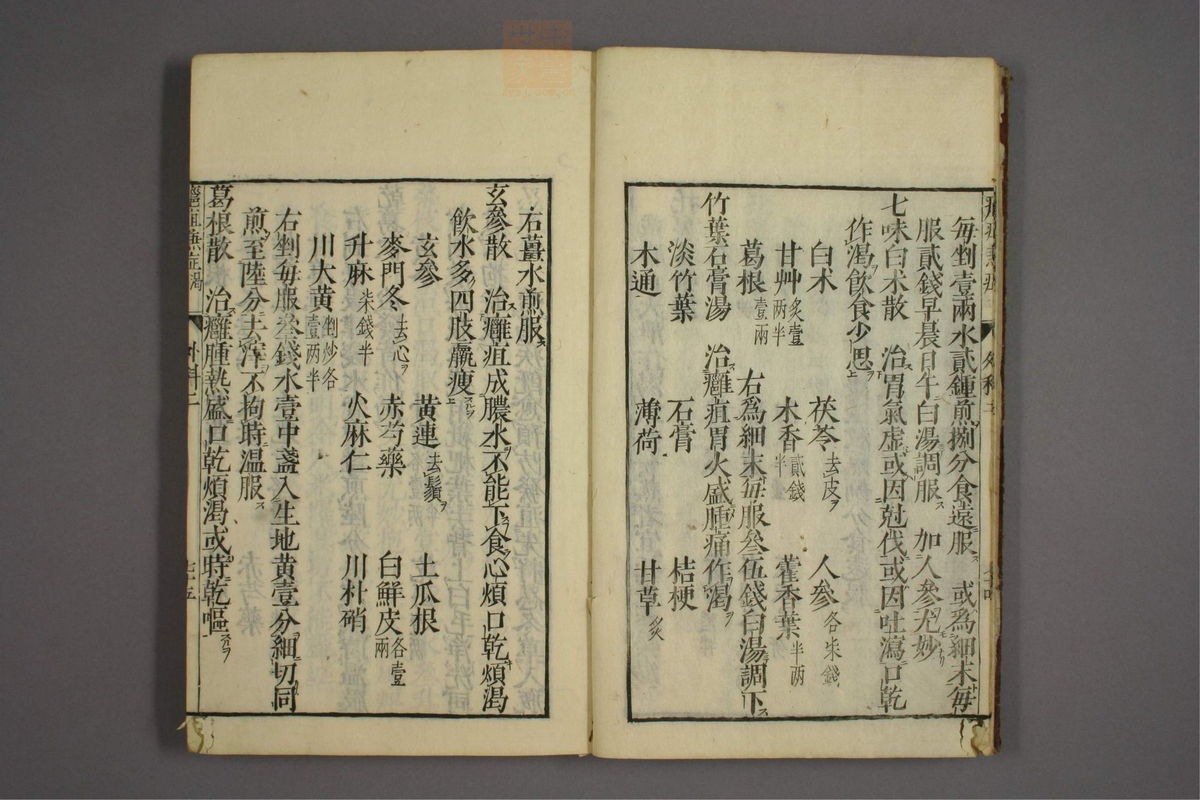 每剉壹兩水貳鍾煎捌分食遠服 或爲細末每
服貳錢早晨日午白湯調服 加人參尤妙
七味白朮散 治胃氣虛或因尅伐或因吐瀉口乾
作渴飲食少思
白朮 茯苓去皮ヲ 人參各柒錢
甘艸炙壹兩半 木香貳錢半 藿香葉半兩
葛根壹兩 右爲細末每服叄伍錢白湯調下
竹葉石膏湯 治癰疽胃火盛腫痛作渴
淡竹葉 石膏 桔梗
木通 薄荷 甘草炙
右薑水煎服
玄參散 治癰疽成膿水不能下食心煩口乾煩渴
飲水多四肢羸瘦
玄參 黃連去鬚ヲ 土瓜根
麥門冬去心ヲ 赤芍藥 白鮮皮各壹兩
升麻柒錢半 火麻仁 川朴硝
川大黃剉炒各壹兩半
右剉每服叄錢水壹中盞入生地黃壹分細切同
煎至陸分去滓不拘時溫服
葛根散 治癰腫熱盛口乾煩渴或時乾嘔